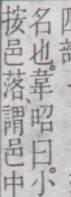 名也。韋昭曰。小
按邑落、謂邑中